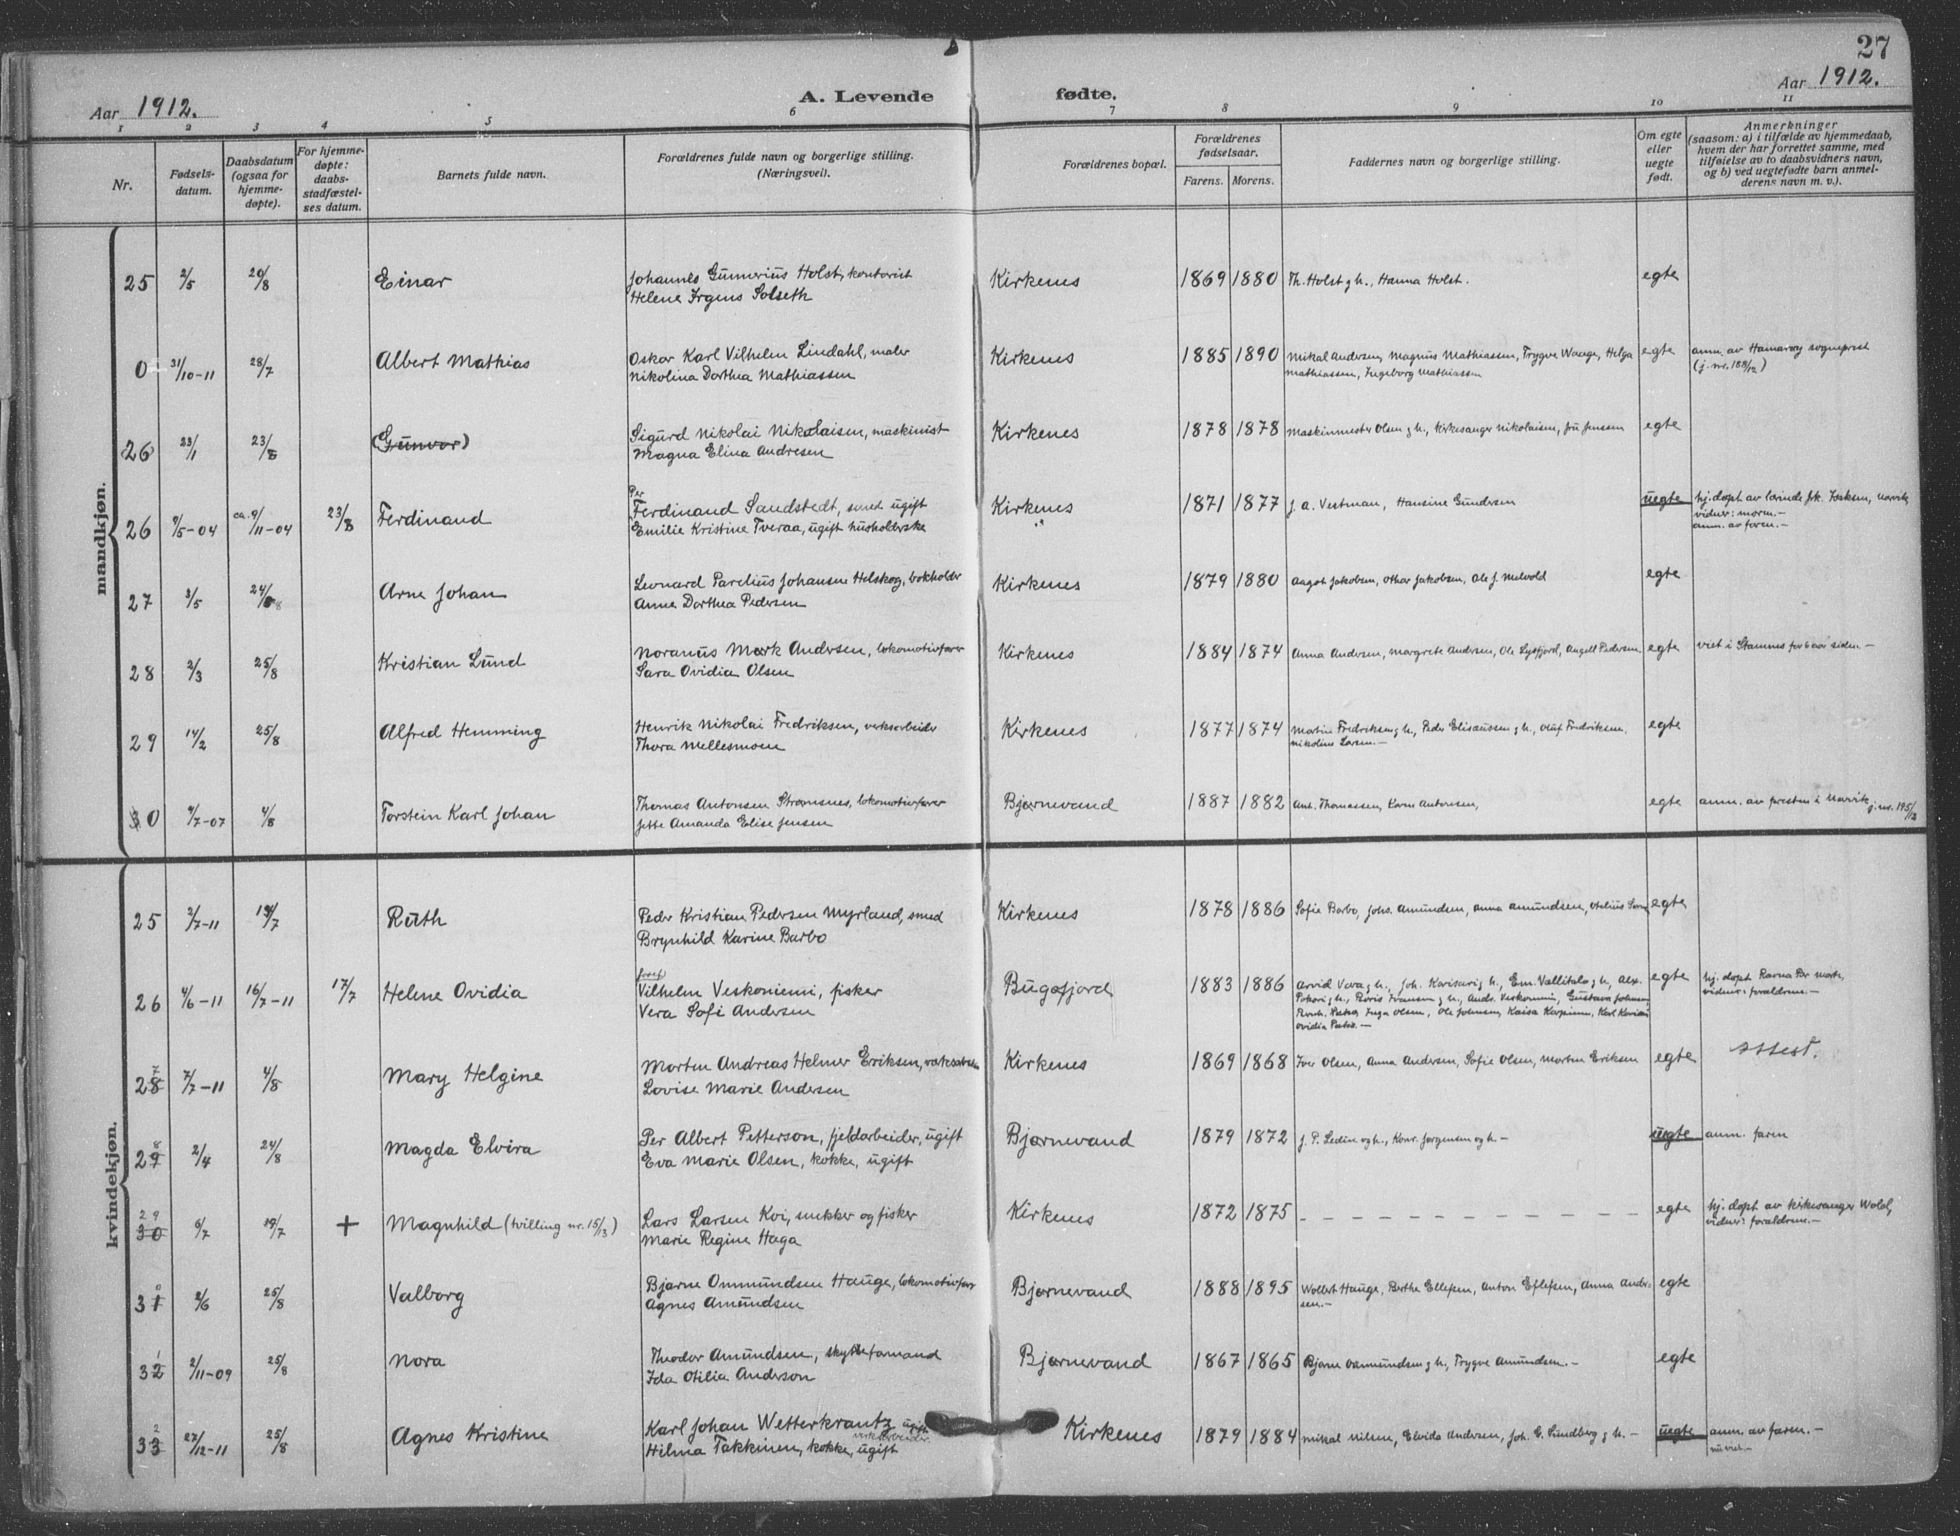 27
Aar 1912. A. Levende fødte. Aar 1912.
1 2 3 4 5 6 7 8 9 10 11
Nr.
Fødsels-
datum.
Daabsdatum
(ogsaa for
hjemme-
døpte).
For hjemme-
døpte:
daabs-
stadfæstel-
ses datum.
Barnets fulde navn.
Forældrenes fulde navn og borgerlige stilling.
(Næringsvei).
Forældrenes bopæl.
Forældrenes
fødselsaar.
Farens. Morens.
Faddernes navn og borgerlige stilling.
Om egte
eller
uegte
født.
Anmerkninger
(saasom: a) i tilfælde av hjemmedaab,
hvem der har forrettet samme, med
tilføielse av to daabsvidners navn,
og b) ved uegtefødte barn anmel-
derens navn m. v.).
mandkjøn.
25 2/5 20/8 Einar Johannes Gunnerius Holst, kontorist Kirkenes 1869 1880 Th. Holst g h., Hanna Holst. egte
Helene Irgens Solseth
0 31/10-11 28/7 Albert Mathias Oskar Karl Vilhelm Lindahl, maler Kirkenes 1885 1890 Mikal Andersen, Magnus Mathiassen, Trygve Waage, Helga egte anm. av Hamarøy sogneprest
Nikolina Dorthea Mathiassen Mathiassen, Ingeborg Mathiassen (j. nr. 188/12)
26 23/1 23/8 (Gunvor) Sigurd Nikolai Nikolaisen, maskinist Kirkenes 1878 1878 Maskinmester Olsen g h., kirkesanger Nikolaisen, fru Jenssen egte
Magna Elina Andresen
Per
26 9/5-04 ca. 9/11-04 23/8 Ferdinand Ferdinand Sandstedt, smed ugift Kirkenes 1871 1877 J. A. Vestman, Hansine Gundersen uegte hj. døpt av lærinde frk. Isaksen, Narvik,
Emilie Kristine Tveraa, ugift husholderske " vidner: morm.-
anm. av faren.-
27 3/5 24/8 Arne Johan Leonard Parelius Johansen Helskog, bokholder Kirkenes 1879 1880 August Jakobsen, Othar Jakobsen, Ole J. Melvold egte
Anne Dorthea Pedersen
28 2/3 25/8 Kristian Lund Noranus Mørk Andersen, lokomotivfører Kirkenes 1884 1874 Anna Andersen, Margrete Andersen, Ole Lysfjord, Angell Pedersen egte viet i Stamnes for 6 aar siden.-
Sara Ovidia Olsen
29 14/2 25/8 Alfred Hemming Henrik Nikolai Fredriksen, verksarbeider Kirkenes 1877 1874 Martin Fredriksen g h., Peder Elisaussen g h., Oluf Fredriksen, egte
Thora Mellesmoen Nikoline Larsen.-
30 9/7-07 4/8 Torstein Karl Johan Thomas Antonsen Strømsnes, lokomotivfører Bjørnevand 1887 1882 Ant. Thomassen, Karen Antonsen, egte anm. av presten i Narvik j. nr. 195/12
Jette Amanda Elise Jensen
kvindekjøn.
25 2/7-11 14/7 Ruth Peder Kristian Pedersen Myrland, smed Kirkenes 1878 1886 Sofie Barbo, Johs. Amundsen, Anna Amundsen, Otelius egte
Brynhild Karine Barbo
Josef
26 4/6-11 16/7-11 17/7 Helene Ovidia Vilhelm Veskoniemi, fisker Bugøfjord 1883 1886 Arvid Vara g h., Joh. Karisari g h., Em. Vallitalo g h., Alx. egte hj. døpt
Vera Sofi Andersen vidner: forældrene.-
Inga Olsen, Ole Johnsen, Kaisa Karpinen,
Ovidia
2 8 7 7/7-11 4/8 Mary Helgine Morten Andreas Helmer Eriksen, Kirkenes 1869 1868 Iver Olsen, Anna Andersen, Sofie Olsen, Morten Eriksen egte Attest.
Lovise Marie Andersen
29 8 2/4 24/8 Magda Elvira Per Albert Petterson, fjeldarbeider, ugift Bjørnevand 1879 1872 J. P. Ledin og h., Konr. Jørgensen og h.- uegte anm. faren
Eva Marie Olsen, kokke, ugift
30 29 6/7 19/7 + Magnhild (tvilling nr. 15/13) Lars Larsen Koi, snekker og fisker Kirkenes 1872 1875 - - - - - - - - - egte hj. døpt av kirkesanger Wolal,
Marie Regine Haga vidner: forældrene.-
31 0 2/6 25/8 Valborg Bjarne Ommundsen Hauge, lokomotivfører Bjørnevand 1888 1895 Wollert Hauge, Berthe Ellefsen, Anton Ellefsen, Anna Ander- egte
Agnes Amundsen sen.-
32 1 2/11-09 25/8 Nora Theodor Amundsen, skytteformand Bjørnevand 1867 1865 Bjarne Ommundsen g h., Trygve Amundsen.- egte
Ida Otilia Anderson
33 2 27/12-11 25/8 Agnes Kristine Karl Johan Wetterkrantz, ugift Kirkenes 1879 1884 Mikal Nilsen, Elvida Andersen, Joh. G. Sundberg g h.- uegte anm. av faren.-
verksarbeider.
Hilma Takkinen, kokke, ugift nu viet.-